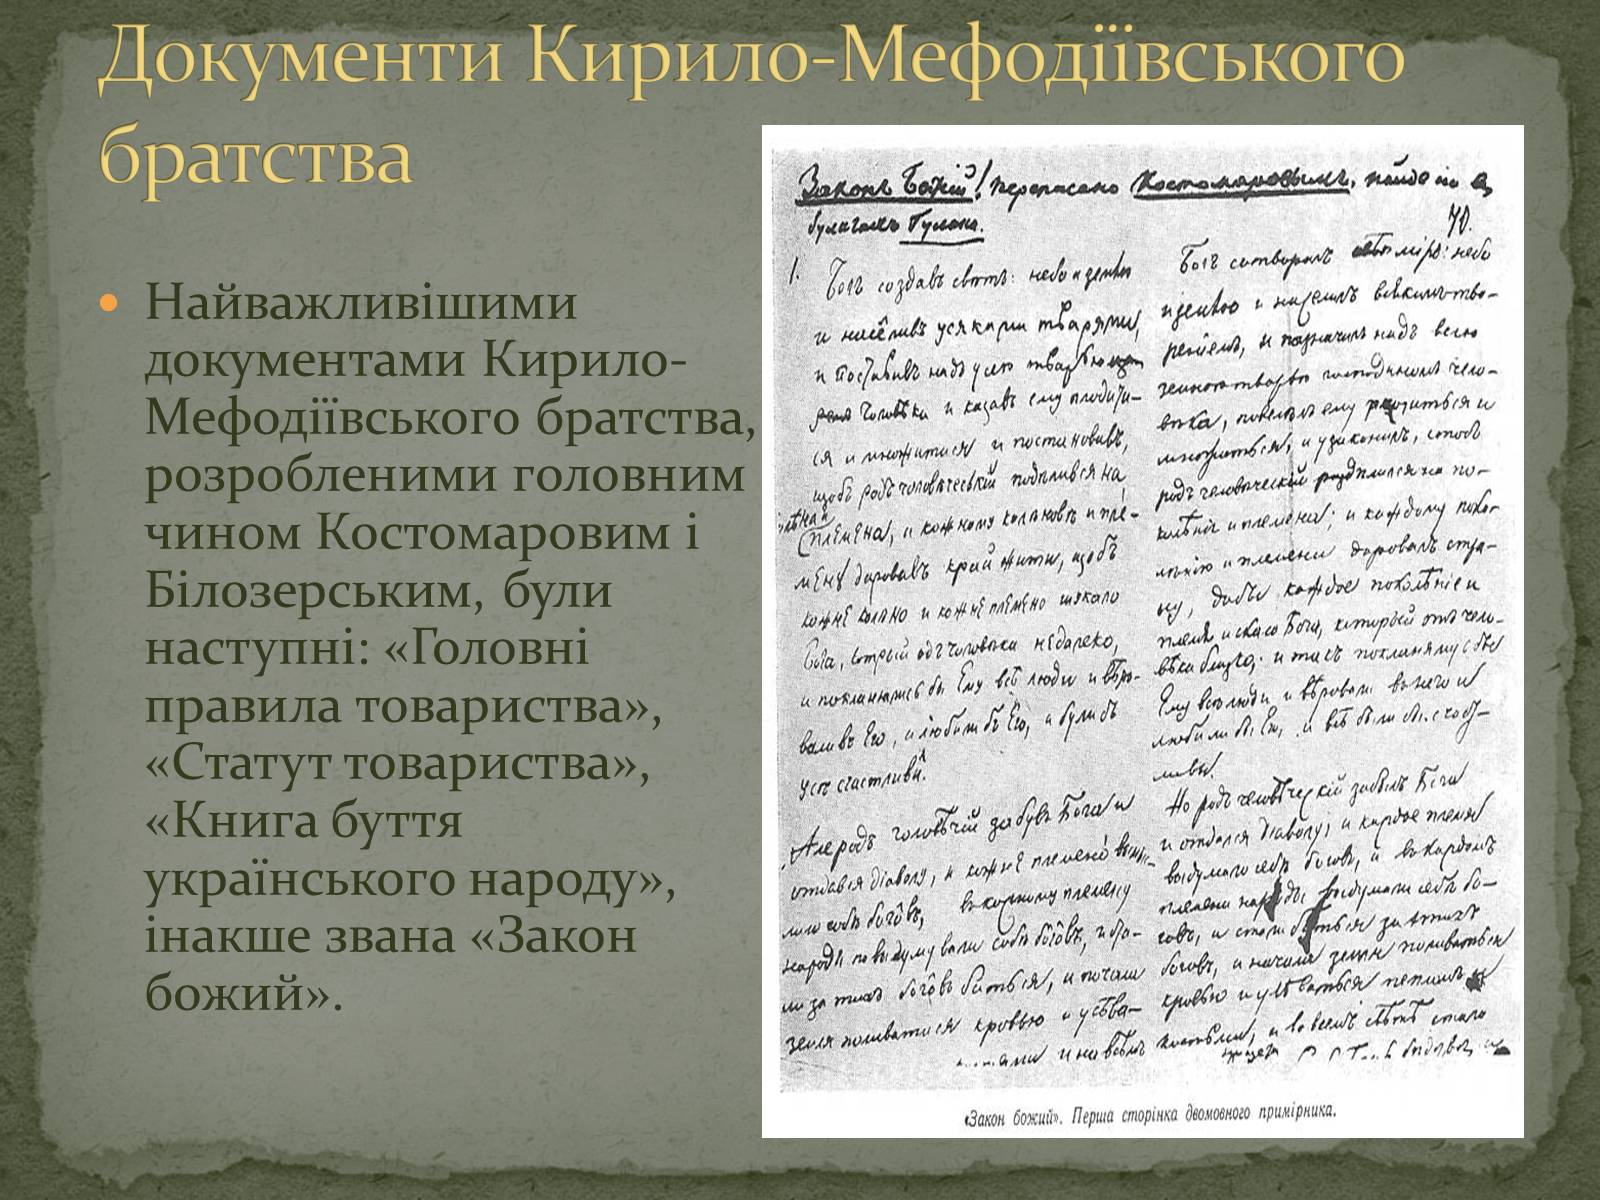 Документи Кирило-Мефодіївського
братства
Найважливішими
документами Кирило-
Мефодіївського братства,
розробленими головним
чином Костомаровим і
Білозерським, були
наступні: «Головні
правила товариства»,
«Статут товариства»,
«Книга буття
українського народу»,
інакше звана «Закон
божий».
Законъ Божій! переписано Костомаровымъ,
бумагахъ Гулака.
70.
1.
Богъ создавъ свѣтъ: небо и землю
и населивъ усякими тварями,
и поставивъ надъ усею тварью
человѣка и казавъ ему плодити-
ся и множитися и постановивъ,
щобъ родъ человѣческій подѣлився на
племена, и кожному колѣновѣ и пле-
мену даровавъ край жити, щобъ
кожне колѣно и кожне племено шукало
Бога, котрый одъ человѣка недалеко,
и покланялись бы Ему всѣ люди и вѣро-
вали въ Его, и любили бъ Его, и були бъ
усѣ счастливи.
Але родъ человѣчій забувъ Бога и
отдався діаволу, и кожне племено
собѣ богôвъ, въ кожному племену
народи повыдумували собѣ богôвъ, и ста-
ли за тихъ богôвъ биться, и почала
земля поливатися кровью и усѣва-
и на всѣмъ
Богъ сотворилъ міръ: небо
и землю и населилъ всякими тво-
реніемъ, и назначилъ надъ всею
земною тварью господиномъ чело-
вѣка, повелѣлъ ему родиться и
множиться, и узаконилъ, чтобъ
родъ человѣческій раздѣлился на по-
колѣнія и племена; и каждому поко-
лѣнію и племени даровалъ стра-
ну, дабы каждое поколѣніе и
племя искало Бога, который отъ чело-
вѣка близко, и такъ поклонялись бы
Ему всѣ люди и вѣровали въ него и
любили бы Его, и всѣ были бы счаст-
ливы.
Но родъ человѣческій забылъ Бога
и отдался діаволу; и каждое племя
выдумало себѣ боговъ, и въ каждомъ
племени народы выдумали себѣ бо-
говъ, и стали биться за этихъ
боговъ, и начала земля поливаться
кровью и усѣваться пепломъ и
костьми, и во всемъ свѣтѣ стало
«Закон божий». Перша сторінка двомовного примірника.